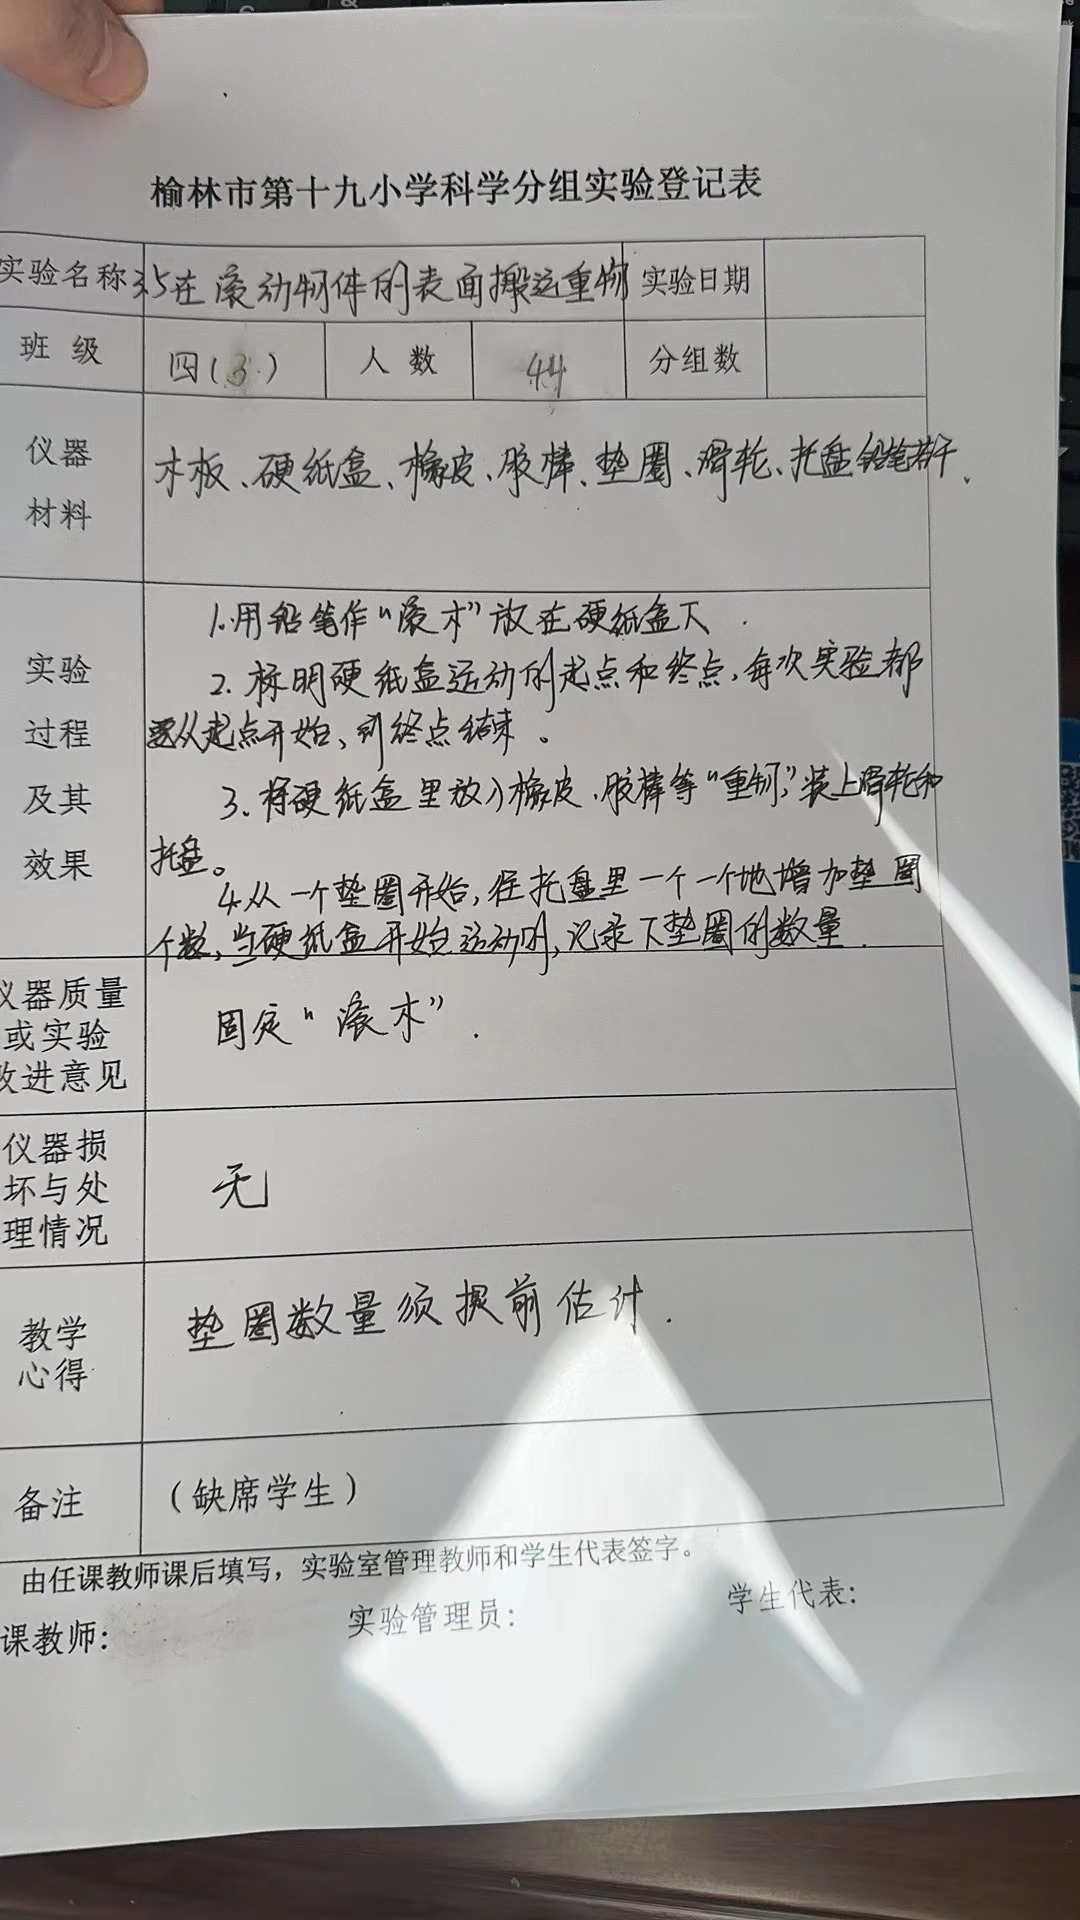 榆林市第十九小学科学分组实验登记表
实验名称 3.5在滚动物体的表面搬运重物 实验日期
班 级 四(3) 人 数 44 分组数
仪器
材料
木板、硬纸盒、橡皮、胶棒、垫圈、滑轮、托盘 铅笔若干.
实验
过程
及其
效果
1.用铅笔作“滚木”放在硬纸盒下.
2.标明硬纸盒运动的起点和终点,每次实验都
要从起点开始,到终点结束。
3.将硬纸盒里放入橡皮、胶棒等“重物”,装上滑轮和
托盘。
4.从一个垫圈开始,往托盘里一个一个地增加垫圈
个数,当硬纸盒开始运动时,记录下垫圈的数量.
仪器质量
或实验
改进意见
固定“滚木”.
仪器损
坏与处
理情况
无
教学
心得
垫圈数量须提前估计.
备注 (缺席学生)
由任课教师课后填写,实验室管理教师和学生代表签字。
课教师: 实验管理员: 学生代表: